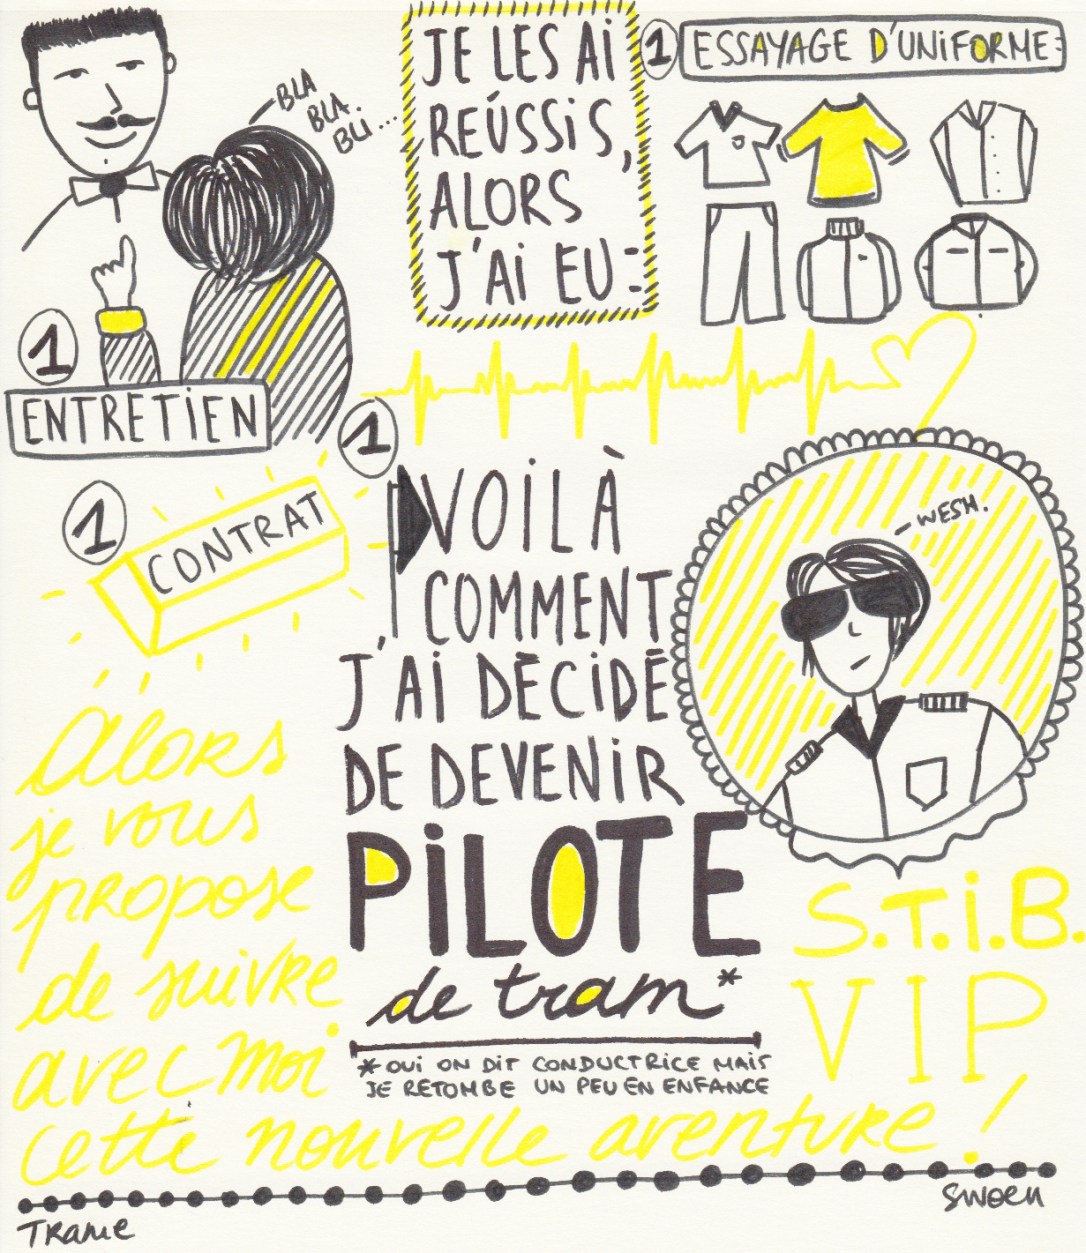 BLA
BLA.
BLI...
JE LES AI
RÉUSSIS,
ALORS
J'AI EU :
1
ESSAYAGE D'UNIFORME :
1
ENTRETIEN
1
CONTRAT
1
VOILÀ
COMMENT
J'AI DÉCIDÉ
DE DEVENIR
PILOTE
de tram*
*OUI ON DIT CONDUCTRICE MAIS
JE RETOMBE UN PEU EN ENFANCE
WESH.
S.T.I.B.
VIP
Alors
je vous
propose
de suivre
avec moi
cette nouvelle aventure !
TRAME
SWOEN